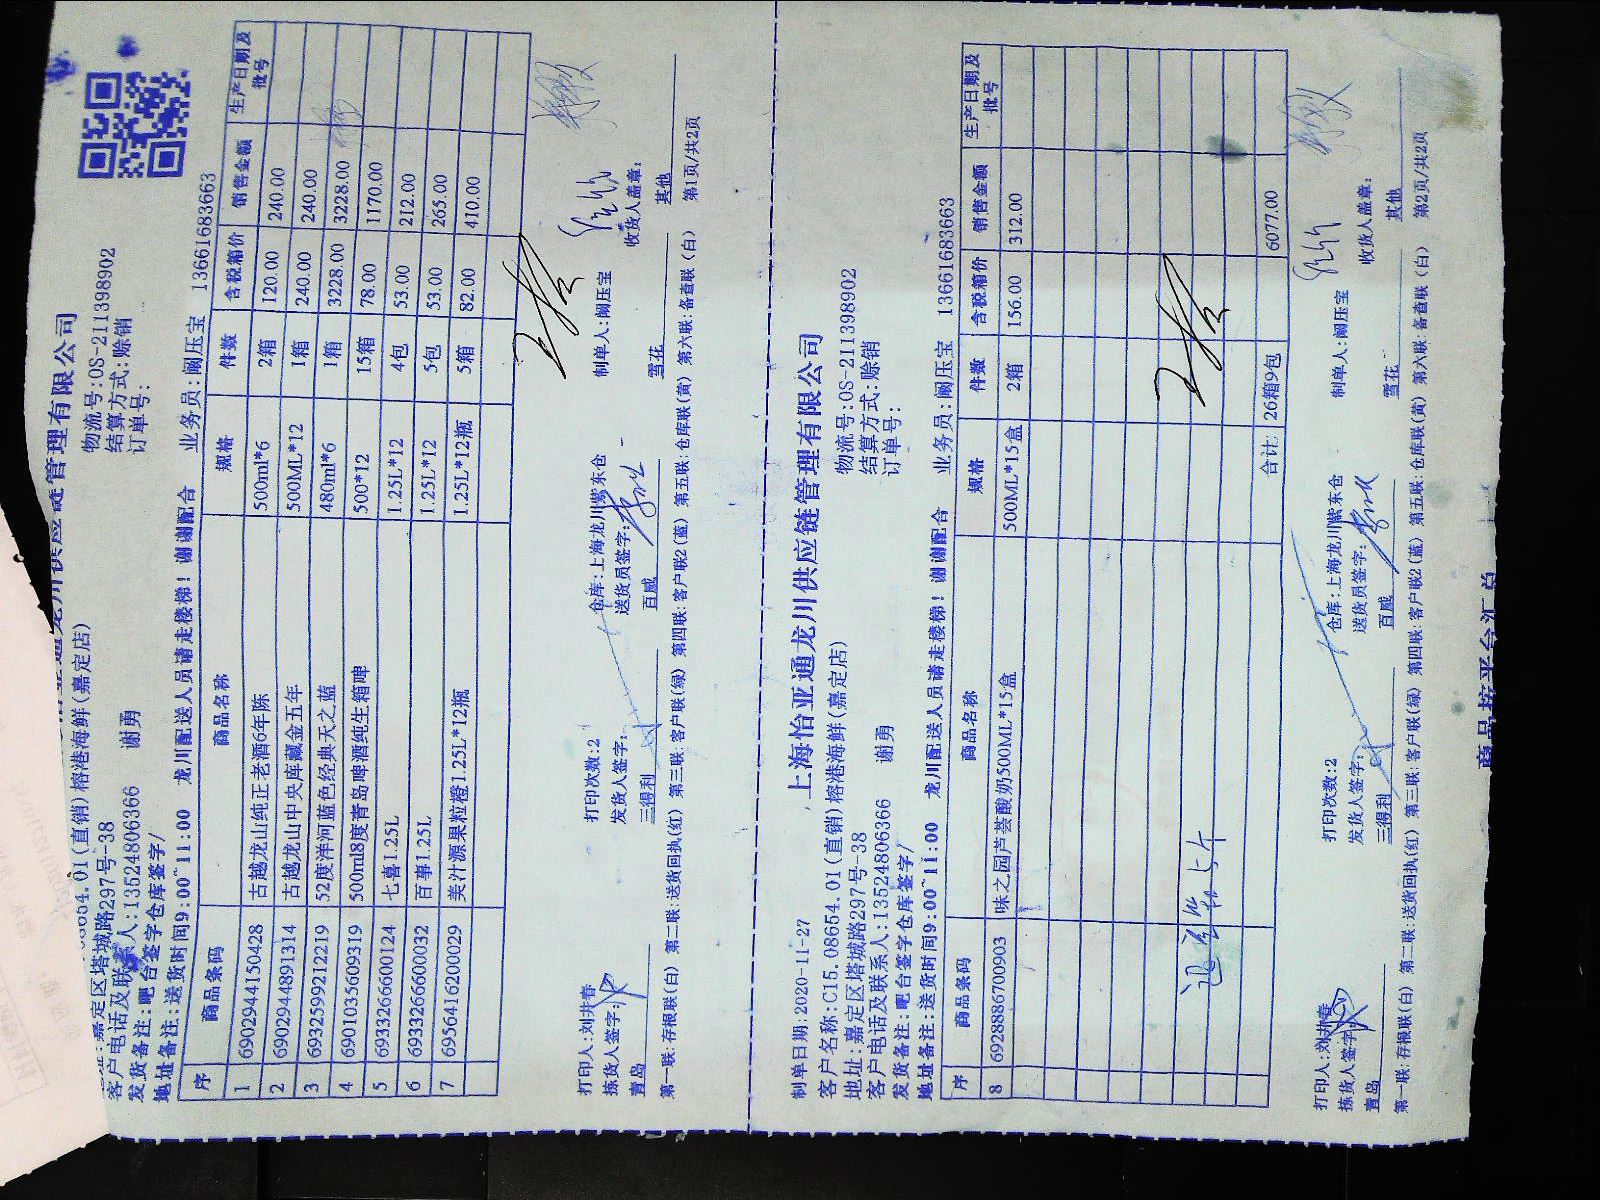 供应链管理有限公司
物流号:OS-211398902
结算方式:赊销
订单号:
(直销)榕港海鲜(嘉定店)
嘉定区塔城路297号-38
客户电话及联系人:13524806366 谢勇
发货备注:吧台签字仓库签字/
地址备注:送货时间9:00~11:00 龙川配送人员请走楼梯!谢谢配合 业务员:阚压宝 13661683663
序 商品条码 商品名称 规格 件数 含税箱价 销售金额 生产日期及批号
1 6902944150428 古越龙山纯正老酒6年陈 500ml*6 2箱 120.00 240.00
2 6902944891314 古越龙山中央库藏金五年 500ML*12 1箱 240.00 240.00
3 6932599212219 52度洋河蓝色经典天之蓝 480ml*6 1箱 3228.00 3228.00
4 6901035609319 500ml8度青岛啤酒纯生箱啤 500*12 15箱 78.00 1170.00
5 6933266600124 七喜1.25L 1.25L*12 4包 53.00 212.00
6 6933266600032 百事1.25L 1.25L*12 5包 53.00 265.00
7 6956416200029 美汁源果粒橙1.25L*12瓶 1.25L*12瓶 5箱 82.00 410.00
打印人:刘井春 打印次数:2 仓库:上海龙川紫东仓 制单人:阚压宝
拣货人签字: 发货人签字: 送货员签字: 收货人盖章:
青岛 三得利 百威 雪花 其他
第一联:存根联(白) 第二联:送货回执(红) 第三联:客户联(绿) 第四联:客户联2(蓝) 第五联:仓库联(黄) 第六联:备查联(白) 第1页/共2页
上海怡亚通龙川供应链管理有限公司
制单日期:2020-11-27 物流号:OS-211398902
客户名称:C15.08654.01(直销)榕港海鲜(嘉定店) 结算方式:赊销
地址:嘉定区塔城路297号-38 订单号:
客户电话及联系人:13524806366 谢勇
发货备注:吧台签字仓库签字/
地址备注:送货时间9:00~11:00 龙川配送人员请走楼梯!谢谢配合 业务员:阚压宝 13661683663
序 商品条码 商品名称 规格 件数 含税箱价 销售金额 生产日期及批号
8 6928886700903 味之园芦荟酸奶500ML*15盒 500ML*15盒 2箱 156.00 312.00
合计: 26箱9包 6077.00
打印人:刘井春 打印次数:2 仓库:上海龙川紫东仓 制单人:阚压宝
拣货人签字: 发货人签字: 送货员签字: 收货人盖章:
青岛 三得利 百威 雪花 其他
第一联:存根联(白) 第二联:送货回执(红) 第三联:客户联(绿) 第四联:客户联2(蓝) 第五联:仓库联(黄) 第六联:备查联(白) 第2页/共2页